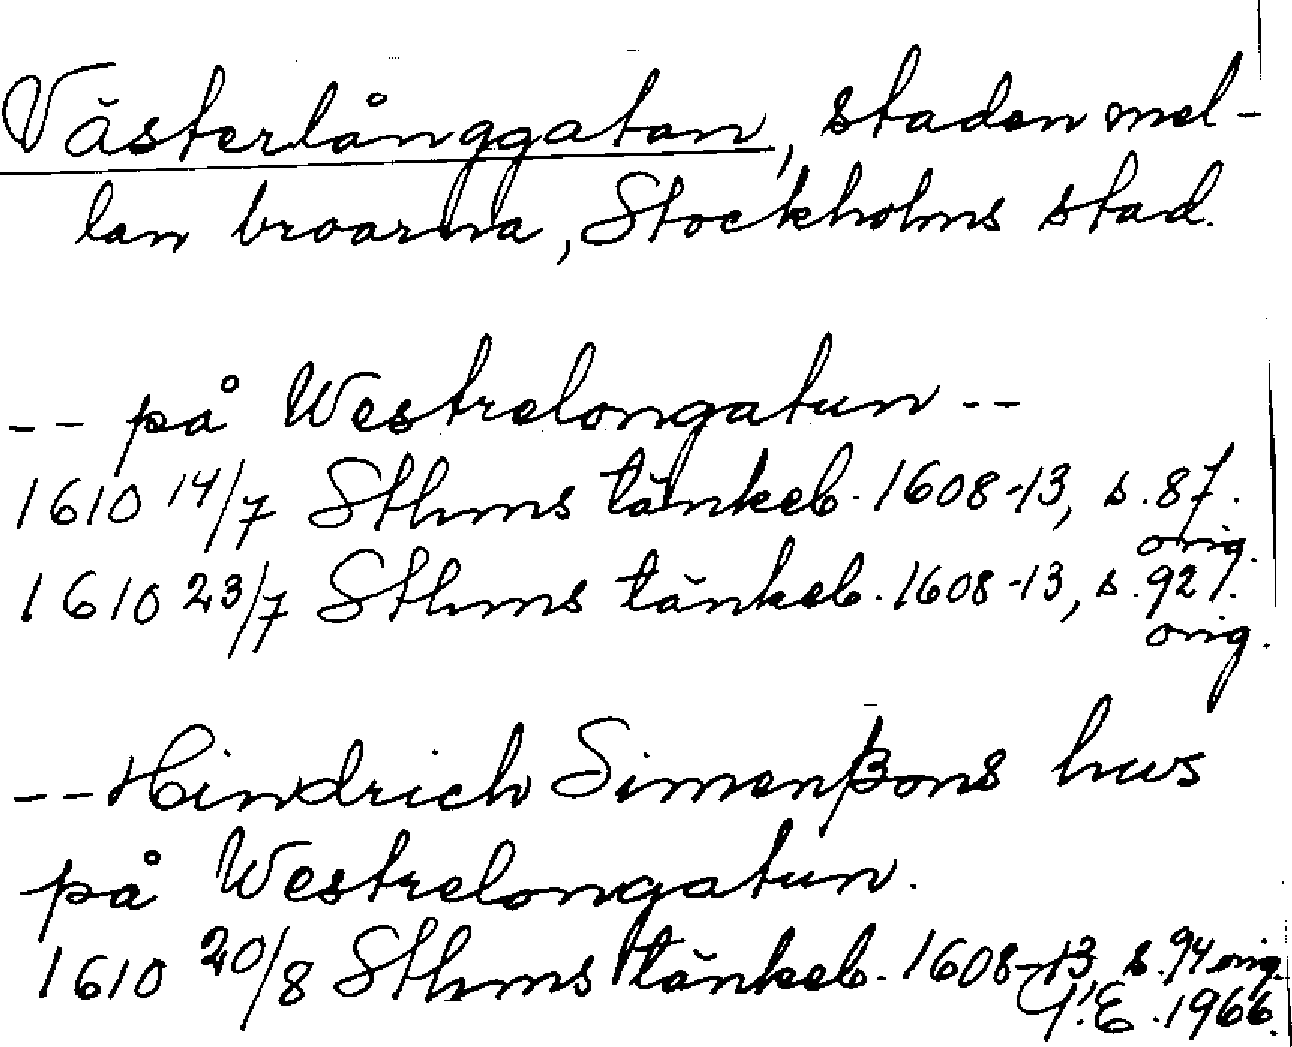 Västerlånggatan, staden mel-
lan broarna, Stockholms stad.
-- på Westrelongatun --
1610 14/7 Sthms tänkeb. 1608-13, s. 87.
orig.
1610 23/7 Sthms tänkeb. 1608-13, s. 92
orig.
-- Hindrich Simenßons hws
på Westrelongatun.
1610 20/8 Sthms tänkeb. 1608-13, s. 94 orig
E. 1966.